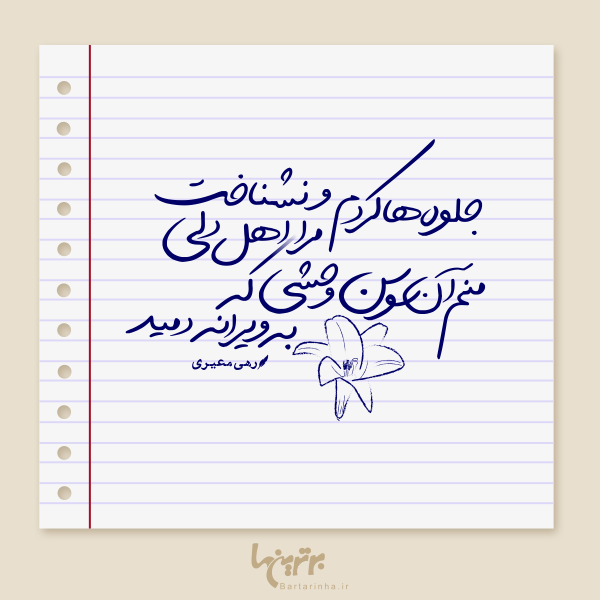 جلوه‌ها کردم و نشناخت
مرا اهل دلی
منم آن سوسن وحشی که
به ویرانه دمید
رهی معیری
برترین‌ها
Bartarinha.ir